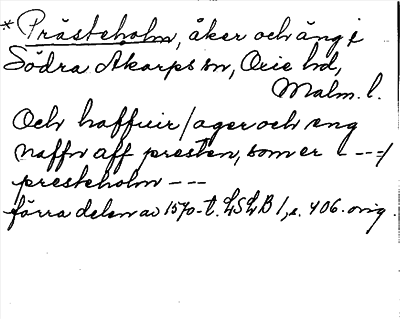 * Prästeholm, åker och äng i
Södra Åkarps sn, Oxie hd,
Malm. l.
Och haffuir / ager och eng
naffn aff presten, som er - - - /
presteholm - - -
förra delen av 1570-t. LSLB 1, s. 406. orig.